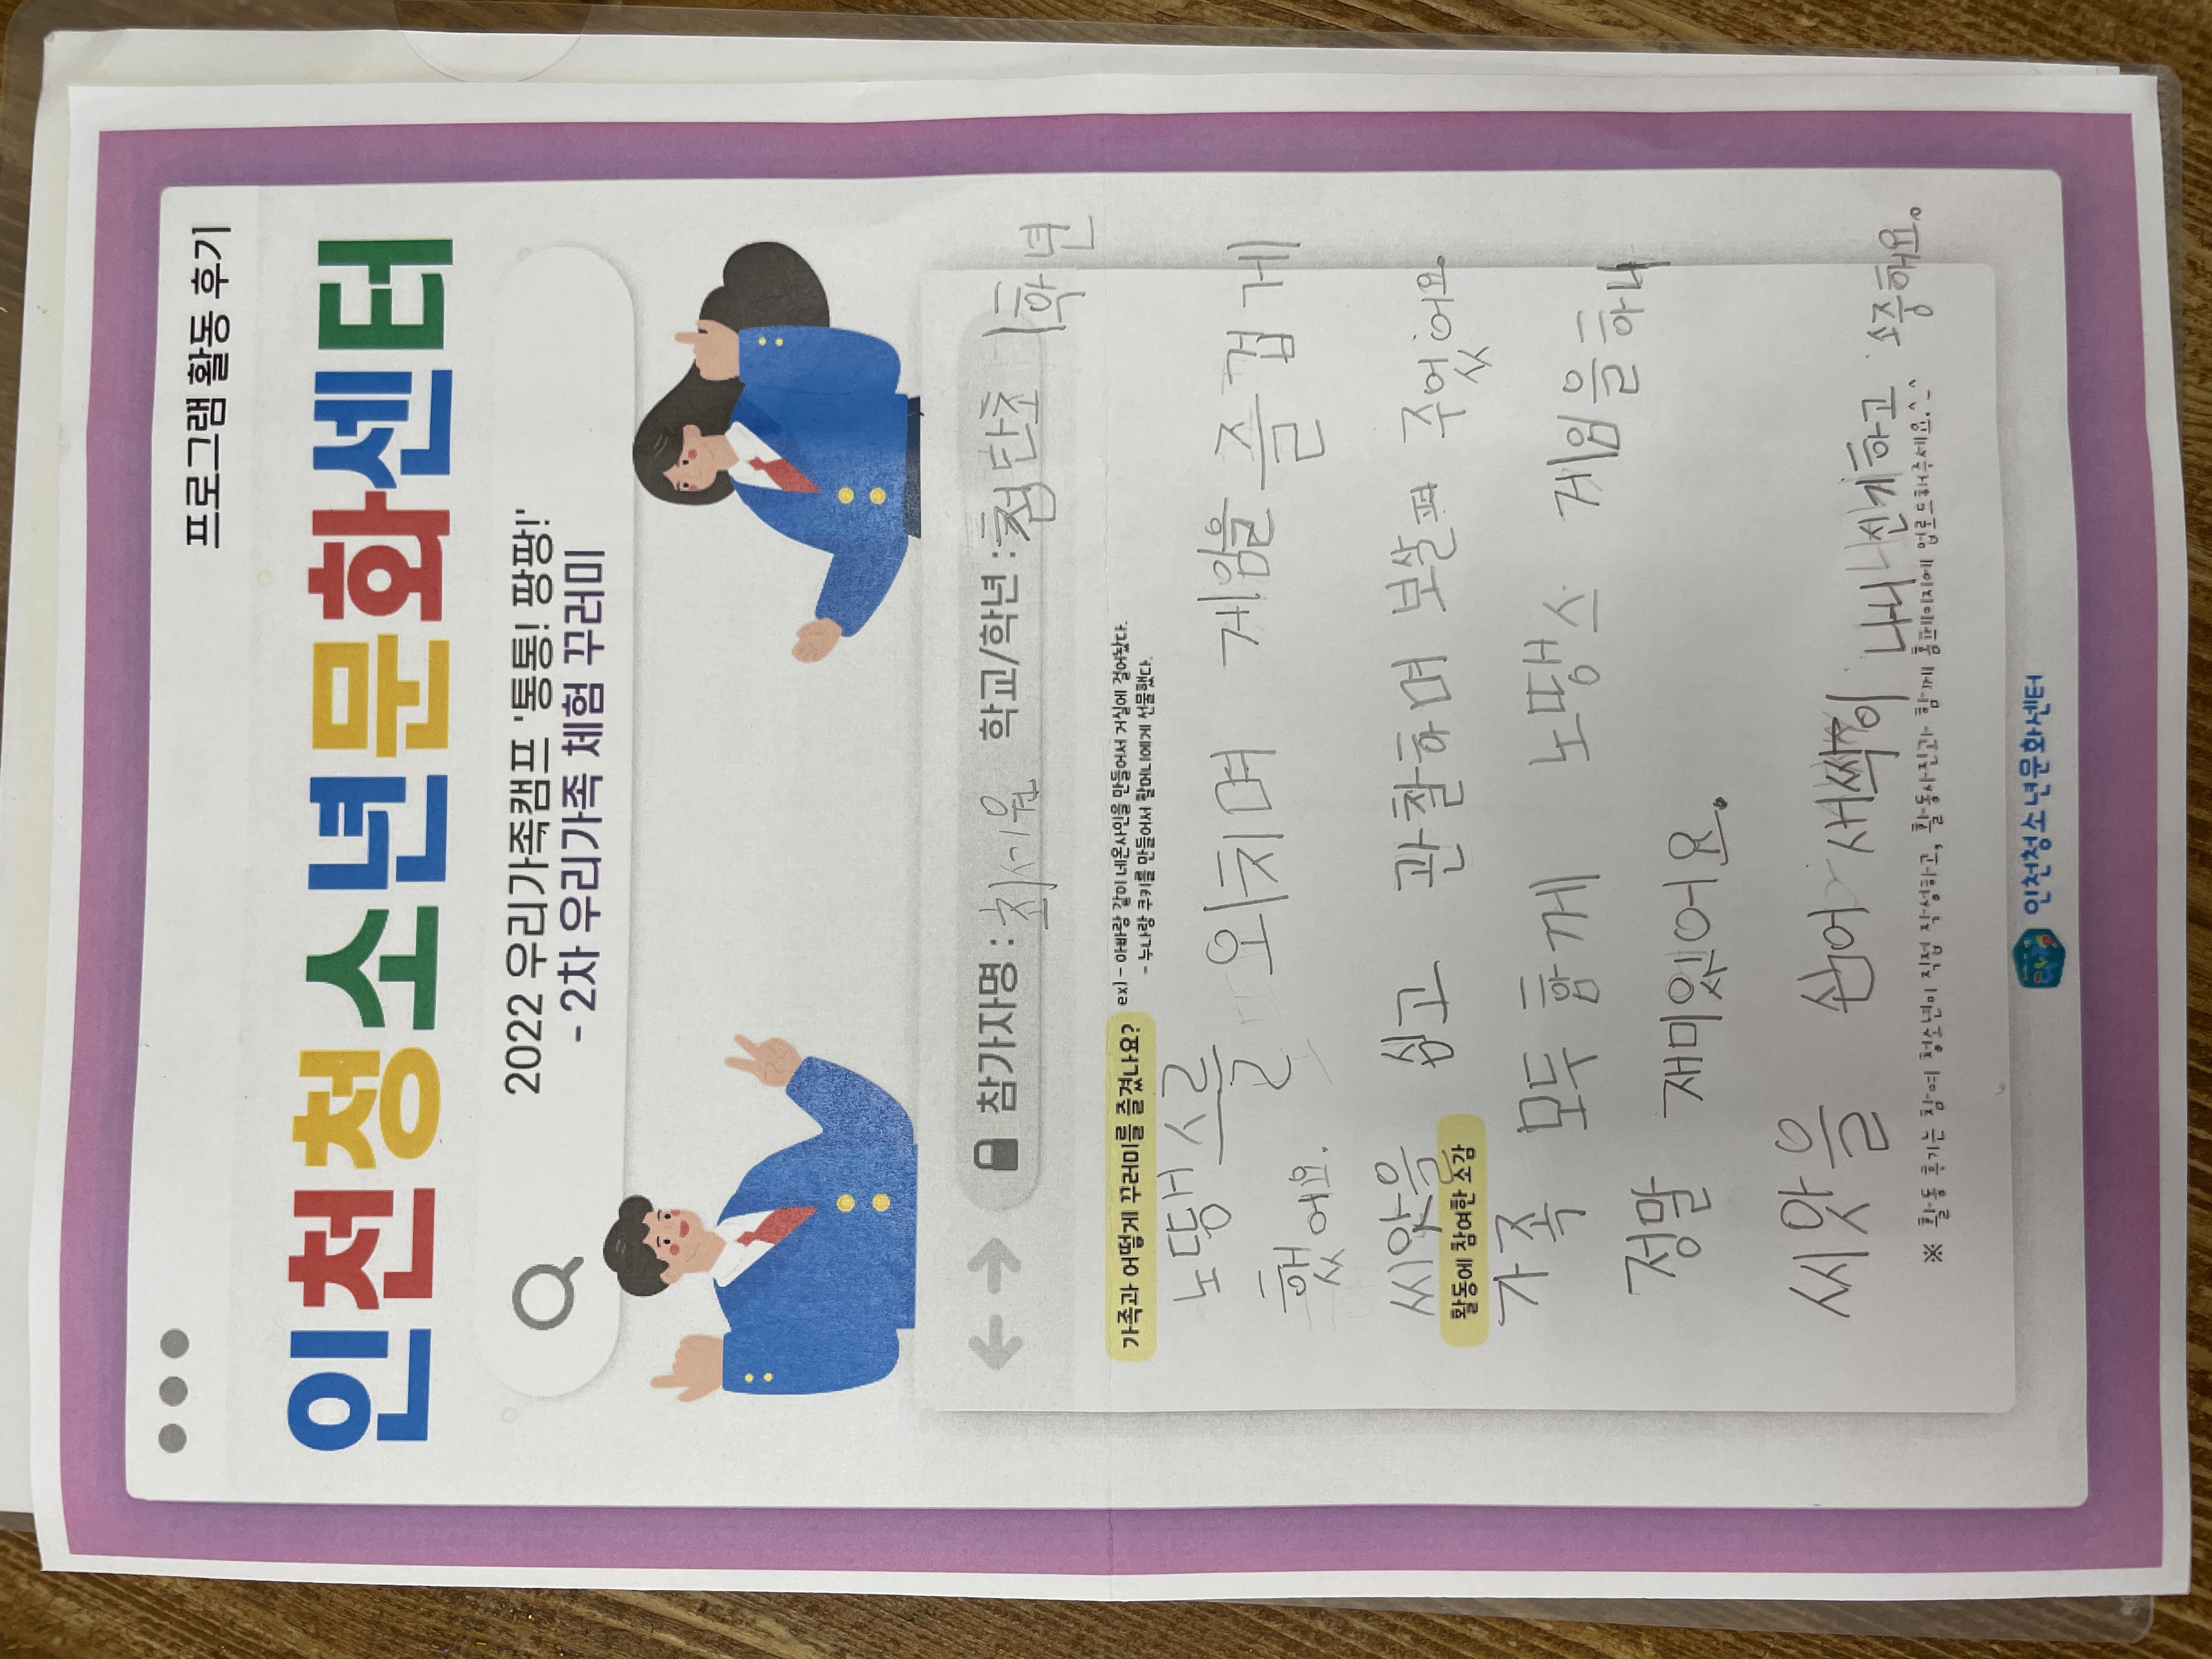 프로그램 활동 후기
인천청소년문화센터
2022 우리가족캠프 '통통! 팡팡!'
- 2차 우리가족 체험 꾸러미
참가자명 : 최서원 학교/학년 : 첨단초 1학년
가족과 어떻게 꾸러미를 즐겼나요? ex) - 아빠랑 같이 네온사인을 만들어서 거실에 걸어놨다.
- 누나랑 쿠키를 만들어서 할머니에게 선물했다.
노땡스를 외치며 게임을 즐겁게
했어요.
씨앗을 심고 관찰하며 보살펴 주었어요.
활동에 참여한 소감
가족 모두 함께 노땡스 게임을 하니
정말 재미있었어요.
씨앗을 심어 새싹이 나니 신기하고 소중해요.
※ 활동 후기는 참여 청소년이 직접 작성하고, 활동사진과 함께 홈페이지에 업로드해주세요.^^
인천청소년문화센터